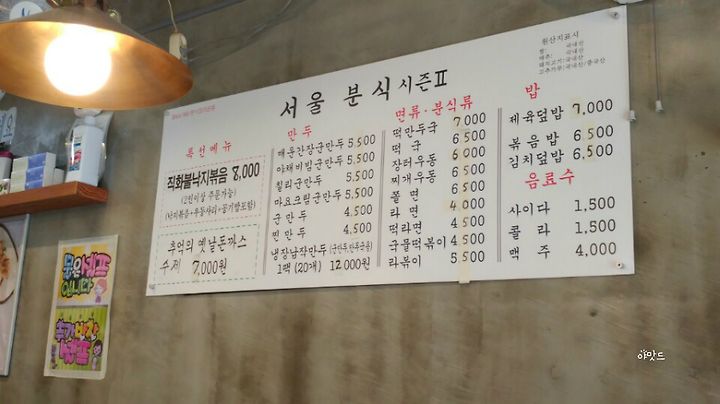 서울 분식 시즌Ⅱ
원산지표시
쌀: 국내산
배추: 국내산
돼지고기: 국내산
고추가루: 국내산/중국산
특선메뉴
직화불낙지볶음 8,000
(2인이상 주문가능)
(낙지볶음+우동사리+공기밥포함)
추억의 옛날돈까스
수제 7,000원
만두
매운간장군만두 5,500
야채비빔군만두 5,500
칠리군만두 5,500
마요크림군만두 5,500
군만두 4,500
찐만두 4,500
냉장납작만두 (군만두,찐만두용)
1팩 (20개) 12,000원
면류·분식류
떡만두국 7,000
떡국 6,500
장터우동 6,500
찌개우동 6,500
쫄면 6,500
라면 4,000
떡라면 4,500
국물떡볶이 4,500
라볶이 5,500
밥
제육덮밥 7,000
볶음밥 6,500
김치덮밥 6,500
음료수
사이다 1,500
콜라 1,500
맥주 4,000
물은 셀프입니다
추가반찬 셀프
야맛드